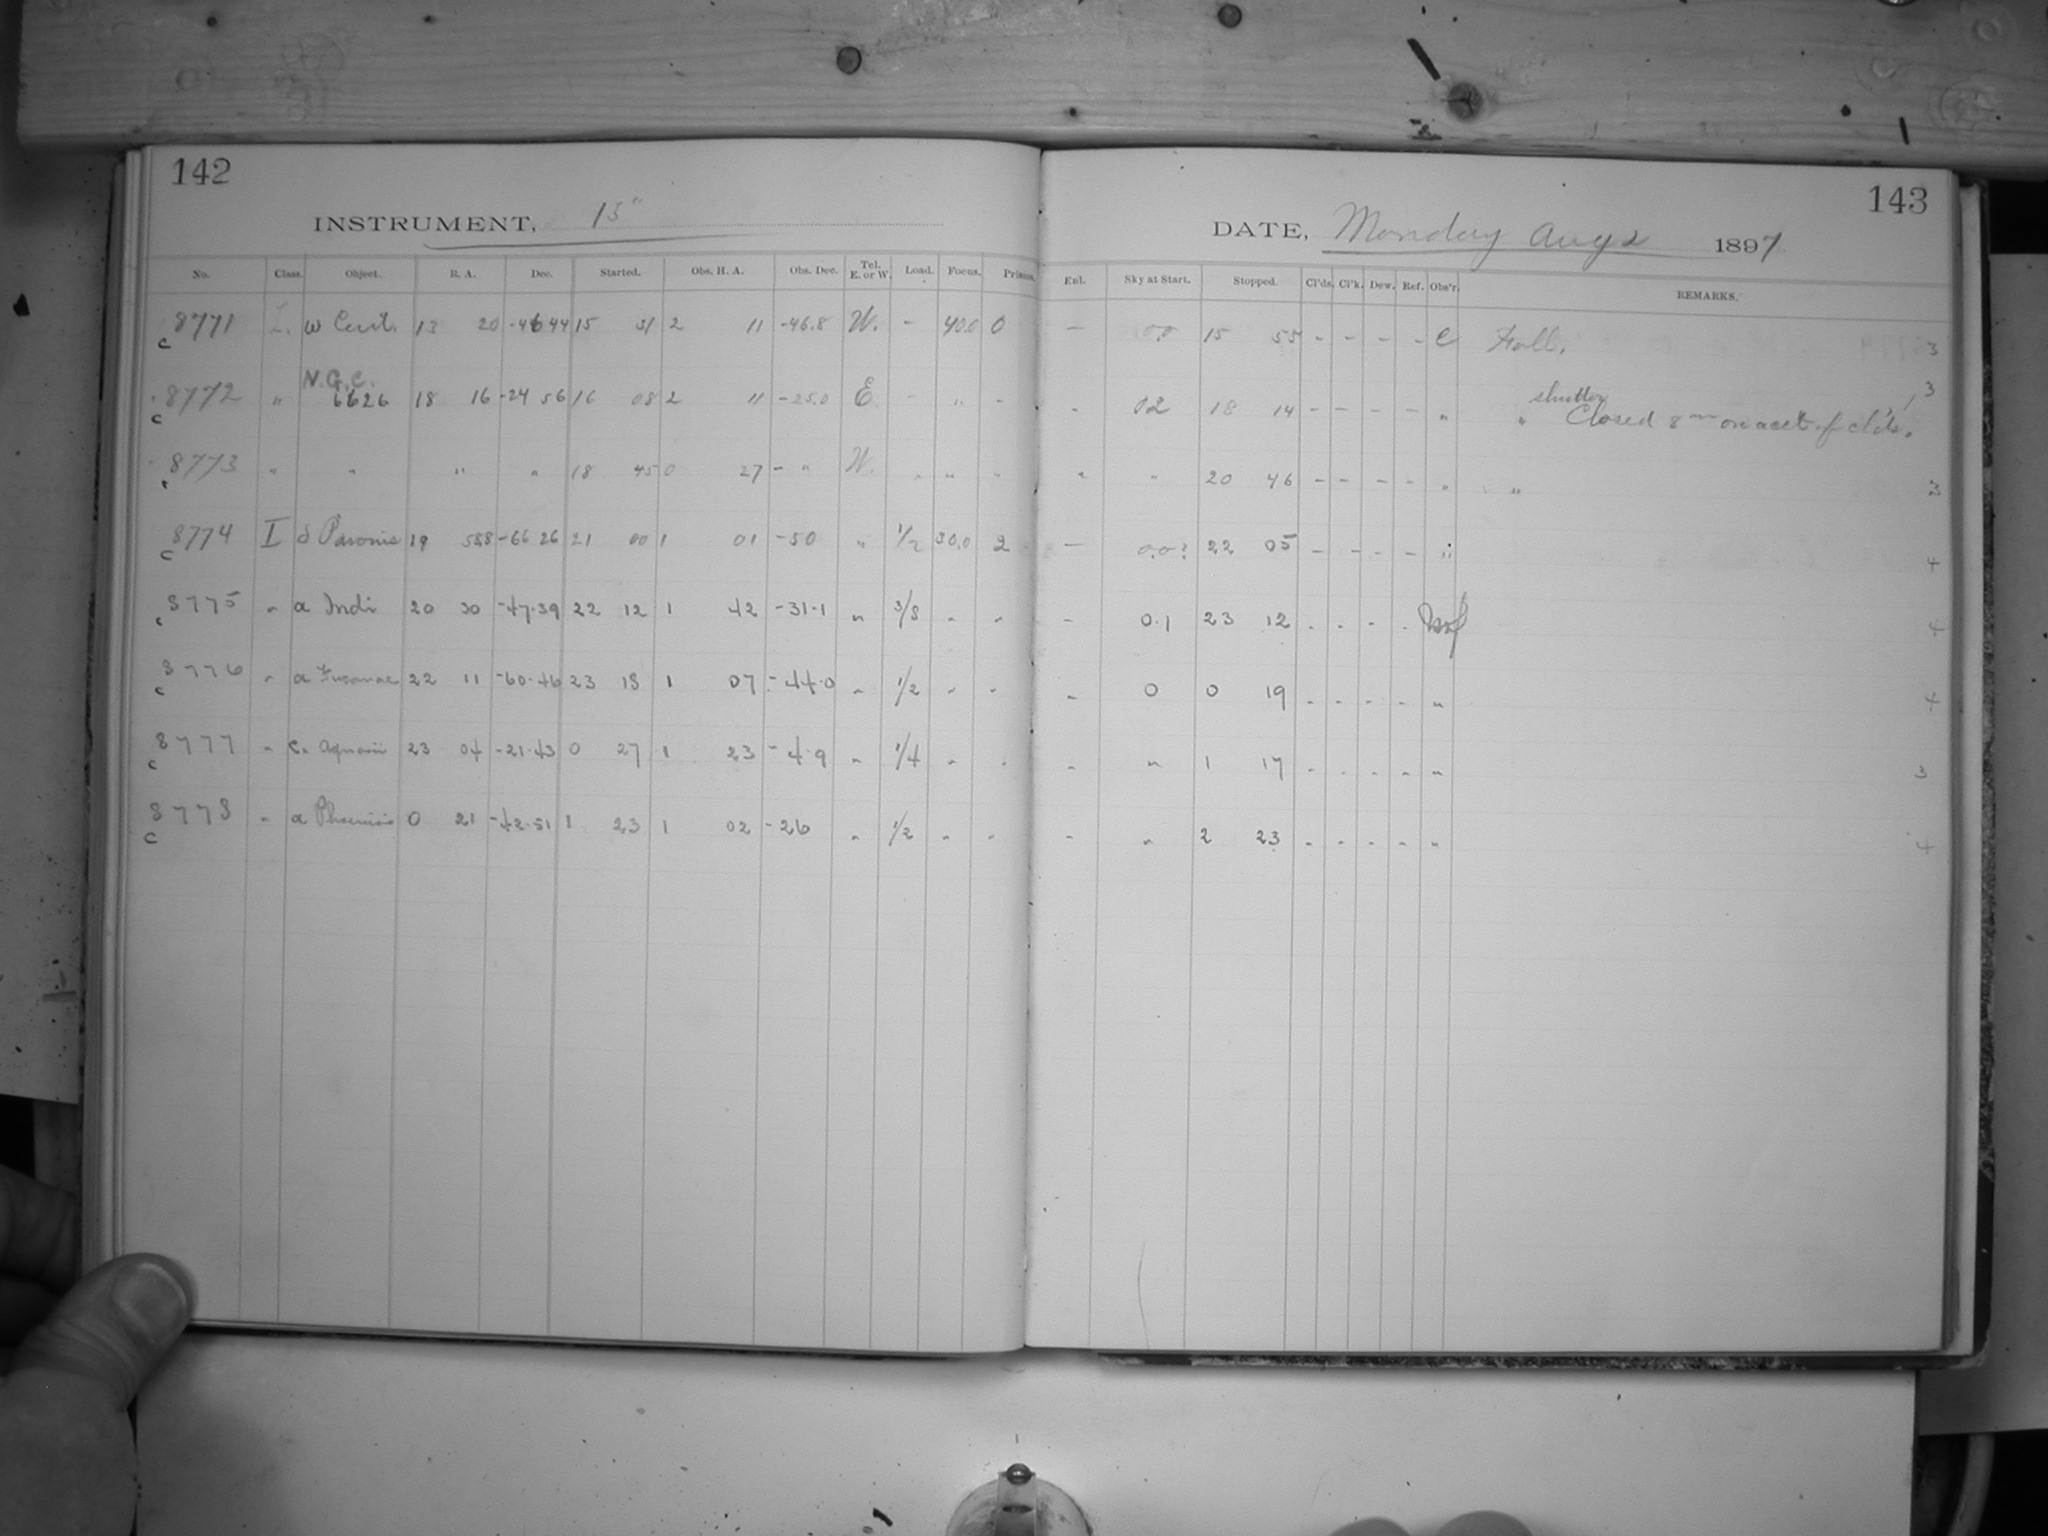 142
INSTRUMENT, 13"
No. Class. Object. R. A. Dec. Started. Obs. H. A. Obs. Dec. Tel. E. or W. Load. Focus. Prisms.
c 8771 L. ω Cent. 13 20 -46 44 15 51 2 11 -46.8 W. - 40.0 0
N.G.C.
c 8772 " 6626 18 16 -24 56 16 08 2 11 -25.0 E - " -
c 8773 " " " " 18 45 0 27 - " W. " " "
c 8774 I δ Pavonis 19 58.8 -66 26 21 00 1 01 -50 " 1/2 30.0 2
c 8775 " α Indi 20 30 -47.39 22 12 1 42 -31.1 " 3/8 " "
c 8776 " α Tucanae 22 11 -60.46 23 18 1 07 -44.0 " 1/2 " "
c 8777 " c. Aquarii 23 04 -21.43 0 27 1 23 -4.9 " 1/4 " "
c 8778 " α Phoenicis 0 21 -42.51 1 23 1 02 -26 " 1/2 " "
143
DATE, Monday Aug 2 1897
Enl. Sky at Start. Stopped. Cl'ds. Cl'k. Dew. Ref. Obs'r. REMARKS.
- 0.0 15 55 - - - - C Foll. 3
shutter
- 02 18 14 - - - - " " Closed 8 m on acct of clds. 1 3
" " 20 46 - - - - " " 3
- 0.0? 22 05 - - - - " 4
- 0.1 23 12 - - - - 4
" 0 0 19 - - - - " 4
" " 1 17 - - - - " 3
" " 2 23 - - - - " 4